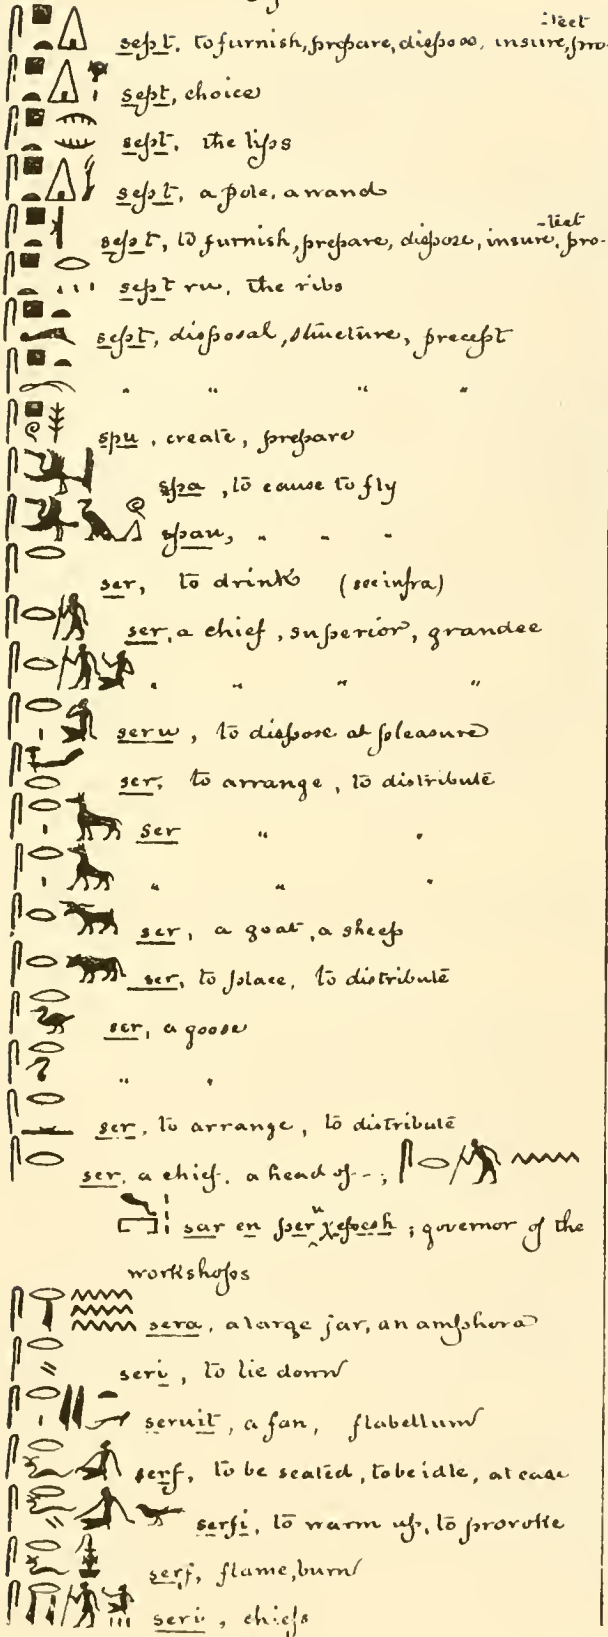 sept, to furnish, prepare, dispose, insure, pro-tect
sept, choice
sept, the lips
sept, a pole, a wand
sept, to furnish, prepare, dispose, insure, pro-tect
sept ru, the ribs
sept, disposal, structure, precept
" " " "
spu, create, prepare
spa, to cause to fly
spau, " " "
ser, to drink (see infra)
ser, a chief, superior, grandee
" " " "
seru, to dispose at pleasure
ser, to arrange, to distribute
ser " "
" " "
ser, a goat, a sheep
ser, to place, to distribute
ser, a goose
" "
ser, to arrange, to distribute
ser, a chief, a head of -;
sar en per u χepesh; governor of the
workshops
sera, a large jar, an amphora
seri, to lie down
seruit, a fan, flabellum
serf, to be seated, to be idle, at ease
serfi, to warm up, to provoke
serf, flame, burn
seri, chiefs